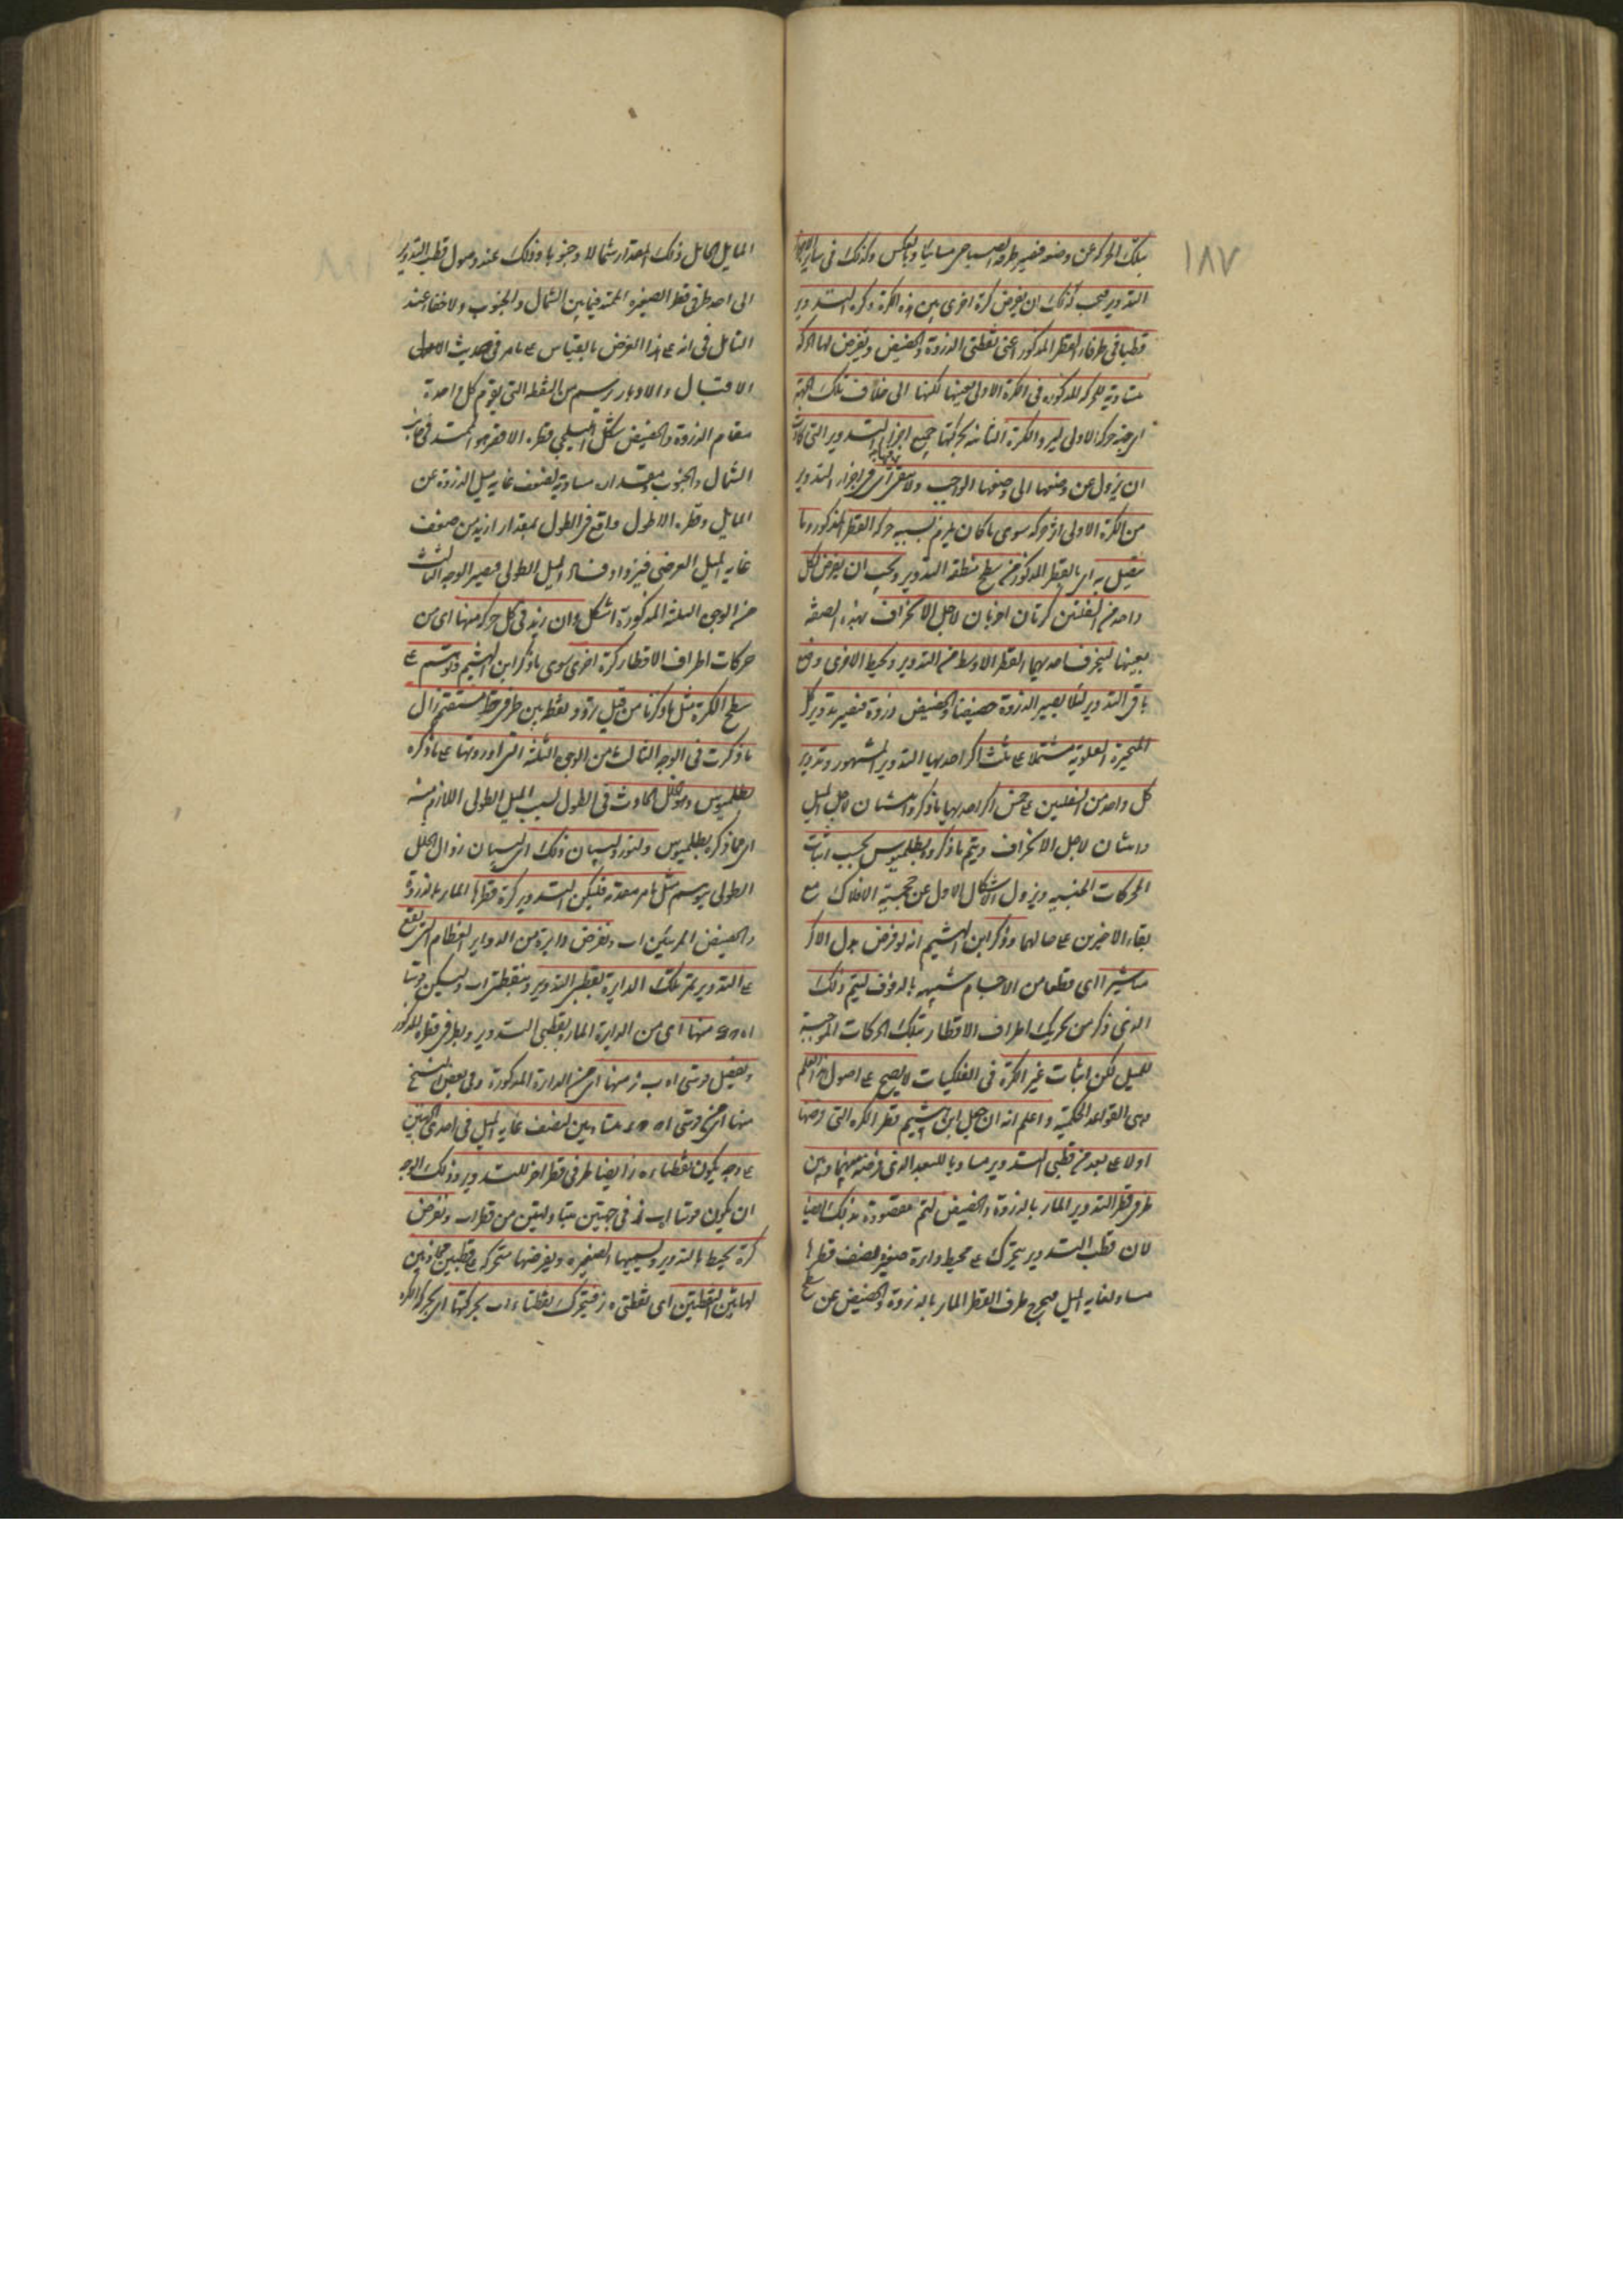 ١٨٧
بتلك الحركة عن وضعه فيصير طرفه الصباحى مسائيا وبالعكس وكذلك فى ساير اجزاء
التدوير فيجب لذلك ان يفرض كرة اخرى بين هذه الكرة وكرة التدوير
قطباها فى طرفى القطر المذكور اعنى نقطتى الذروة والحضيض ويفرض لها حركة
مساوية للحركة المذكورة فى الكرة الاولى بعينها لكنها الى خلاف تلك الجهة
اى جهة حركة الاولى ليرد الكرة الثانية بحركتها جميع اجزاء التدوير التى كادت
ان يزول عن وضعها الى وضعها الواجب ولا يبقى فى اجزاء التدوير
من الكرة الاولى اثر حركة سوى ما كان يلزم بسببه حركة القطر المذكور وما
يتصل به اى بالقطر المذكور من سطح منطقة التدوير ويجب ان يفرض لكل
واحد من السفليين كرتان اخريان لاجل الانحراف بهذه الصفة
بعينها لينحرف احديهما القطر الاوسط من التدوير ويحفظ الاخرى وضع
باقى التدوير لئلا يصير الذروة حضيضا والحضيض ذروة فيصير تدوير كل
المتحيرة العلوية مشتملا على ثلث اكر احديها التدوير المشهور وتدوير
كل واحد من السفليين على خمس اكر احديها ما ذكر واثنتان لاجل الميل
واثنتان لاجل الانحراف ويتم ما ذكره بطلميوس بحسب اثبات
الحركات الجنسيه ويزول الاشكال الاول عن جهة الافلاك مع
بقاء الاخيرين على حالهما وذكر ابن الهيثم انه لو فرض بدل الاكر
مناشير اى قطعا من الاجسام شبيهة بالدفوف ليتم ذلك
الذى ذكر من تحريك اطراف الاقطار بتلك الحركات الموجبة
للميل لكن اثبات غير الكرة فى الفلكيات لا يصح على اصول هذا العلم
وهى القواعد الحكمية واعلم انه ان جعل ابن الهيثم قطر الكرة التى فرضها
اولا على بعد من قطبى التدوير مساويا للبعد الذى فرضه بينهما وبين
طرفى قطر التدوير المار بالذروة والحضيض لتم مقصوده بذلك ايضا
لان قطب التدوير يتحرك على محيط دايرة صغيرة نصف قطرها
مساو لغاية الميل فيخرج طرف القطر المار بالذروة والحضيض عن سطح
المايل الحامل ذلك المقدار شمالا وجنوبا وذلك عند وصول قطب التدوير
الى احد طرفى قطر الصغيرة الممتد فيما بين الشمال والجنوب ولا خفاء عند
التامل فى انه على هذا الفرض بالقياس على ما مر فى حديث الاصل
الاقبال والادبار يرسم من النقطة التى يقوم كل واحدة
مقام الذروة والحضيض شكل اهليلجى قطره الاقصر هو الممتد فى جانب
الشمال والجنوب بمقدار مساو لضعف غاية ميل الذروة عن
المايل وقطره الاطول واقع فى الطول بمقدار ازيد من ضعف
غاية الميل العرضى فيزداد فساد الميل الطولى فيصير الوجه الثالث
من الوجوه الثلثة المذكورة اشكل وان زيد فى كل حركة منها اى من
حركات اطراف الاقطار كرة اخرى سوى ما ذكر ابن الهيثم وترتسم على
سطح الكرة مثل ما ذكرنا من قبل تردد نقطة بين طرفى خط مستقيم زال
ما ذكرت فى الوجه الثالث من الوجوه الثلثة التى اوردتها على ما ذكره
بطلميوس وهو الخلل الحادث فى الطول بسبب الميل الطولى اللازم منه
اى مما ذكره بطلميوس ولنورد لبيان ذلك اى لبيان زوال الخلل
الطولى برسم مثل ما مر مقدمة فليكن التدوير كرة قطرها المار بالذروة
والحضيض المرئيين ا ب ولنفرض دايرة من الدواير العظام التى تقع
على التدوير تمر تلك الدايرة بقطبى التدوير وبنقطتى ا ب وليكن قوسا
منها اى من الدايرة المارة بقطبى التدوير وبطرفى قطره المذكور
ونفصل قوسى ا ه ب ز منها اى من الدايرة المذكورة وفى بعض النسخ
منها اى من قوسى مساويين لنصف غاية الميل فى احدى الجهتين
على وجه يكون نقطتا ه ز ايضا طرفى قطر اخر للتدوير وذلك الوجه
ان يكون قوسا ا ه ب ز فى جهتين متبادلتين من قطر ا ب ونفرض
كرة يحيط بالتدوير ونسميها الصغيرة ونفرضها متحركة على قطبين محاذيين
لهاتين النقطتين اى نقطتى ه ز فيتحرك نقطتا ا ب بحركتها اى بحركة الكرة